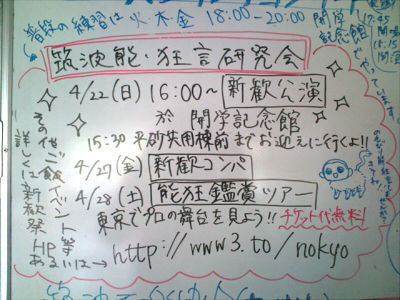 普段の練習は火・木・金 18:00-20:00 開学記念館でやっています。
17:45
開場
筑波能・狂言研究会
4/22(日) 16:00～ 新歓公演
於 開学記念館
15:30 平砂共用棟前までお迎えに行くよ!!
4/27(金) 新歓コンパ
4/28(土) 能狂鑑賞ツアー
東京でプロの舞台を見よう!! チケット代無料!
http://www3.to/nokyo
その他ご飯イベント等
詳しくは新歓祭HP
あるいは→